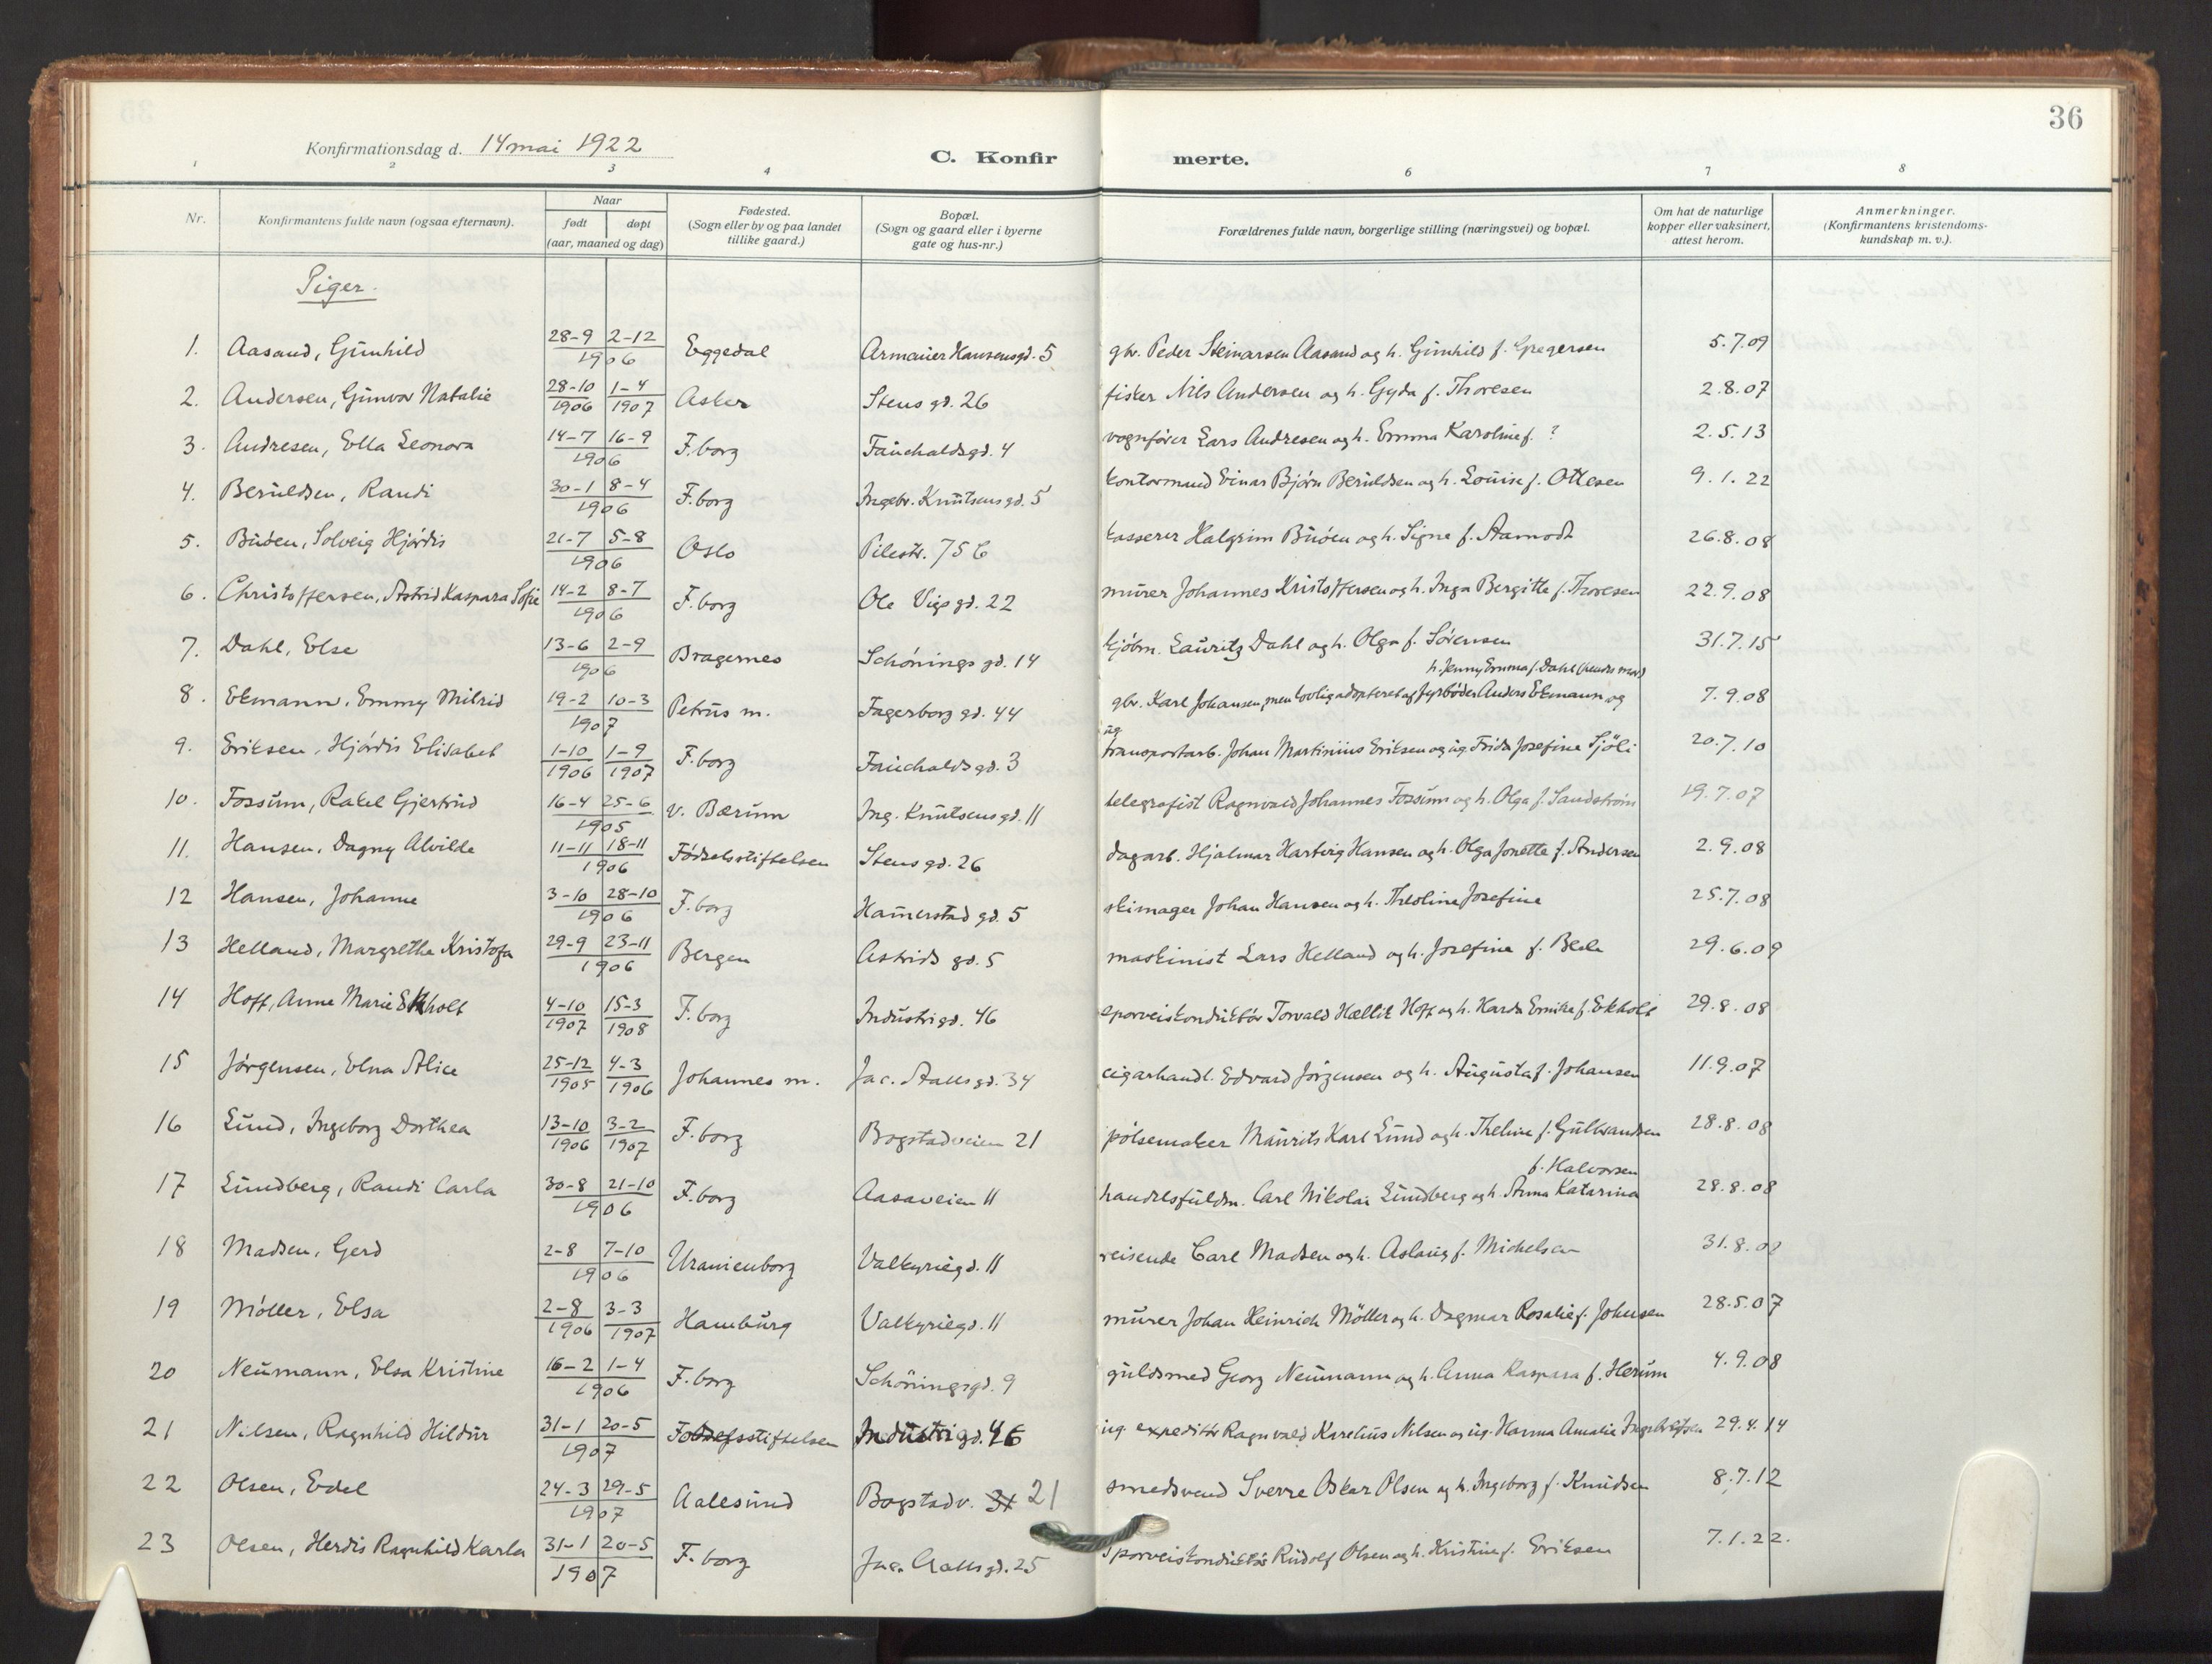 36
Konfirmationsdag d. 14 mai 1922
C. Konfirmerte.
1 2 3 4 6 7 8
Nr. | Konfirmantens fulde navn (ogsaa efternavn). | Naar født døpt (aar, maaned og dag) | Fødested. (Sogn eller by og paa landet tillike gaard.) | Bopæl. (Sogn og gaard eller i byerne gate og hus-nr.) | Forældrenes fulde navn, borgerlige stilling (næringsvei) og bopæl. | Om hat de naturlige kopper eller vaksinert, attest herom. | Anmerkninger. (Konfirmantens kristendomskundskap m. v.).
Piger.
1. Aasand, Gunhild 28-9 2-12 1906 Eggedal Armauer Hansensgd. 5 gbr. Peder Steinarsen Aasand og h. Gunhild f. Gregersen 5.7.09
2. Andersen, Gunvor Natalie 28-10 1906 1-4 1907 Asker Stens gd. 26 fisker Nils Andersen og h. Gyda f. Thoresen 2.8.07
3. Andresen, Ella Leonora 14-7 16-9 1906 F.borg Fauchaldsgd. 4 vognfører Lars Andresen og h. Emma Karoline f. ? 2.5.13
4. Beruldsen, Randi 30-1 8-4 1906 F.borg Ingebr. Knutsensgd. 5 kontormand Einar Bjørn Beruldsen og h. Louise f. Ottesen 9.1.22
5. Buøen, Solveig Hjørdis 21-7 5-8 1906 Oslo Pilestr. 75 kasserer Halgrim Buøen og h. Signe f. Aamodt 26.8.08
6. Christoffersen, Astrid Kaspara Sofie 14-2 8-7 1906 F.borg Ole Vigs gd. 22 murer Johannes Kristoffersen og h. Inga Bergitte f. Thoresen 22.9.08
7. Dahl, Else 13-6 2-9 1906 Bragernes Schønings gd. 14 kjøbm. Lauritz Dahl og h. Olga f. Sørensen 31.7.15
h. Jenny Emma f. Dahl (hendes mor)
8. Ekmann, Emmy Milrid 19-2 10-3 1907 Petrus m. Fagerborg gd. 44 gbr. Karl Johansen, men lovlig adopteret af fyrbøder Anders Ekmann og 7.9.08
9. Eriksen, Hjørdis Elisabet 1-10 1906 1-9 1907 F.borg Fauchaldsgd. 3 ug. transportarb. Johan Martinius Eriksen og ug. Frida Josefine Sjöli 20.7.10
10. Fossum, Rakel Gjertrud 16-4 25-6 1905 V. Bærum Ing. Knutsensgd. 11 telegrafist Ragnvald Johannes Fossum og h. Olga f. Sandstrøm 19.7.07
11. Hansen, Dagny Alvilde 11-11 18-11 1906 Fødselsstiftelsen Stensgd. 26 dagarb. Hjalmar Hartvig Hansen og h. Olga Jonette f. Andersen 2.9.08
12 Hansen, Johanne 3-10 28-10 1906 F.borg Hamerstad gd. 5 skimager Johan Hansen og h. Theoline Josefine 25.7.08
13 Helland, Margrethe Kristofa 29-9 23-11 1906 Bergen Astrids gd. 5 maskinist Lars Helland og h. Josefine f. 29.6.09
14 Hoff, Anne Marie Ekholt 4-10 1907 15-3 1908 F.borg Industrigd. 46 sporveiskonduktør Torvald Hoff og h. f. Ekholt 29.8.08
15 Jørgensen, Elna Alice 25-12 1905 4-3 1906 Johannes m. Jac. Aallsgd. 34 cigarhandl. Edvard Jørgensen og h. Augusta f. Johansen 11.9.07
16 Lund, Ingeborg Dorthea 13-10 1906 3-2 1907 F.borg Bogstadveien 21 pølsemaker Maurits Karl Lund og h. Theline f. Gulbrandsen 28.8.08
f. Halvorsen
17 Lundberg, Randi Carla 30-8 21-10 1906 F.borg Aasaveien 11 handelsfuldm. Carl Nikolai Lundberg og h. Anna Katarina 28.8.08
18 Madsen, Gerd 2-8 7-10 1906 Uranienborg Valkyriegd. 11 reisende Carl Madsen og h. Aslaug f. Michelsen 31.8.
19 Møller, Elsa 2-8 1906 3-3 1907 Hamburg Valkyriegd. 11 murer Johan Heinrich Møller og h. Dagmar Rosalie f. Johnsen 28.5.07
20 Neumann, Elsa Kristine 16-2 1-4 1906 F.borg Schöningsgd. 9 guldsmed Georg Neumann og h. Anna Kaspara f. Herum 4.9.08
21 Nilsen, Ragnhild Hildur 31-1 20-5 1907 Fødselsstiftelsen Industrigd. 46 ug. expeditør Ragnvald Karelius Nilsen og ug. Hanna Amalie 29.4.14
22 Olsen, Edel 24-3 29-5 1907 Aalesund Bogstadv. 31 21 smedsvend Sverre Oskar Olsen og h. Ingeborg f. Knudsen 8.7.12
23 Olsen, Herdis Ragnhild Karla 31-1 20-5 1907 F.borg Jac. Aallsgd. 25 Sporveiskonduktør Rudolf Olsen og h. Kristine f. Eriksen 7.1.22.